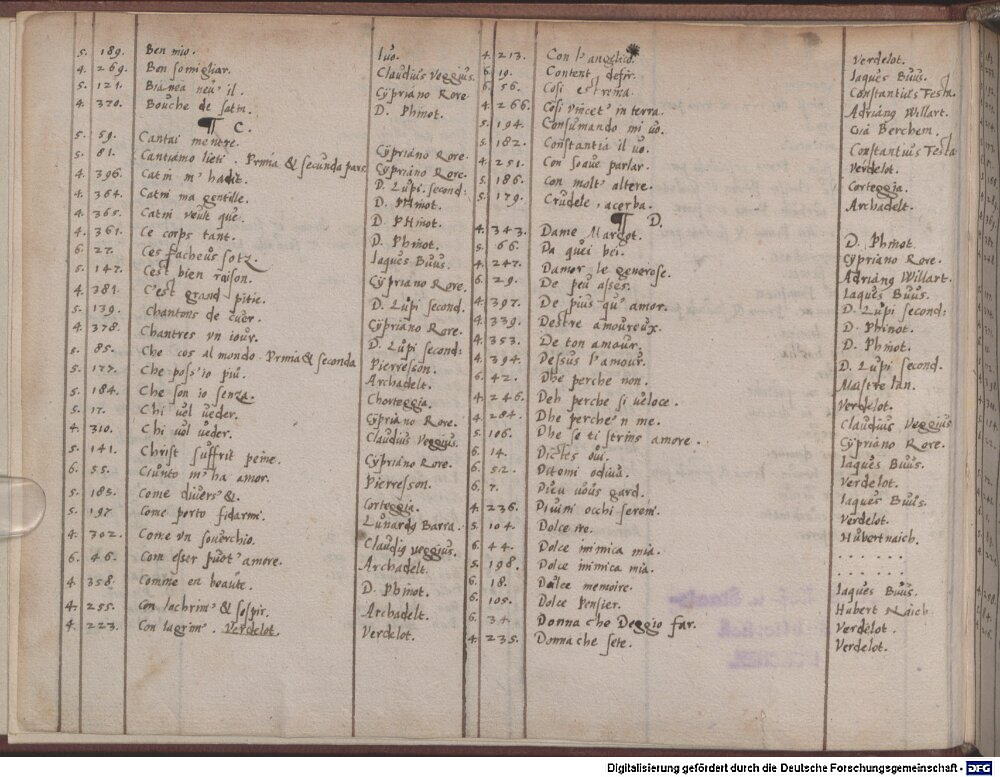 5. 189. Ben mio. Ivo.
4. 269. Ben somigliar. Claudius Veggius.
5. 121. Bianca neu' il. Cÿpriano Rore
4. 370. Bouche de satin. D. Phinot.
¶ C.
5. 59. Cantai mentre. Cÿpriano Rore.
5. 81. Cantiamo lieti. Prima & secunda pars Cÿpriano Rore.
4. 396. Catin m'hadit. D. Lupi. second:
4. 364. Catin ma gentille. D. Phinot.
4. 365. Catin veult que. D. PHinot.
4. 361. Ce corps tant. D. Phinot.
6. 27. Ces facheus sotz. Iaques Buus.
5. 147. Cest bien raison. Cÿpriano Rore.
4. 381. C'est grand pitie. D. Lupi second.
5. 139. Chantons de cuer. Cÿpriano Rore.
4. 378. Chantres vn iour. D. Lupi second:
5. 85. Che cos al mondo. Prmia & seconda Pierresson.
5. 177. Che poss'io più. Archadelt.
5. 184. Che son io senza. Chorteggia.
5. 17. Chi vol veder. Cÿpriano Rore.
4. 310. Chi vol veder. Claudius Veggius.
5. 141. Christ suffrit peine. Cÿpriano Rore.
6. 55. Ciunto m'ha amor. Pierresson.
5. 185. Come divers' &. Corteggia.
5. 197. Come porto fidarmi. Lunardg Barra.
4. 302. Come vn souerchio. Claudig veggius.
6. 46. Com esser puot' amore. Archadelt.
4. 358. Comme en beaute. D. Phinot.
4. 255. Con lachrim' & sospir. Archadelt.
4. 223. Con lagrim'. Verdelot. Verdelot.
4. 213. Con l'angelico. Verdelot.
6. 19. Content desir. Iaques Buus.
6. 56. Cosi estrema. Constantius Festa.
4. 266. Cosi vincet' in terra. Adriang Willart.
5. 194. Consumando mi vo. Gia Berchem.
5. 182. Constantia il vo. Constantius Festa
4. 251. Con soaue parlar. Verdelot.
5. 186. Con molt' altere. Corteggia.
5. 179. Crudele, acerba. Archadelt.
¶ D.
4. 343. Dame Margot. D. Phinot.
5. 66. Da quei bei. Cÿpriano Rore.
4. 247. Damor le generose. Adriang Willart.
6. 29. De peu asses. Iaques Buus.
4. 397. De pius qu'amor. D. Lupi second:
4. 339. Destre amoureux. D. Phinot.
4. 353. De ton amour. D. Phinot.
4. 394. Dessus l'amour. D. Lupi second.
6. 42. Dhe perche non. Maistre Ian.
4. 246. Deh perche si veloce. Verdelot.
4. 284. Dhe perche'n me. Claudius Veggius
5. 106. Dhe se ti strins amore. Cÿpriano Rore.
6. 14. Dictes oui. Iaques Buus.
6. 52. Ditemi o diva. Verdelot.
6. 7. Dieu vous gard. Iaques Buus.
4. 236. Diuini occhi sereni. Verdelot.
5. 104. Dolce ire. Hubert naich.
6. 44. Dolce inimica mia. . . . . . .
5. 198. Dolce inimica mia. . . . . . .
6. 18. Dulce memoire. Iaques Buus.
5. 105. Dolce Pensier. Hubert Naich
6. 34. Donna che Deggio far. Verdelot.
4. 235. Donna che sete. Verdelot.
Digitalisierung gefördert durch die Deutsche Forschungsgemeinschaft - DFG